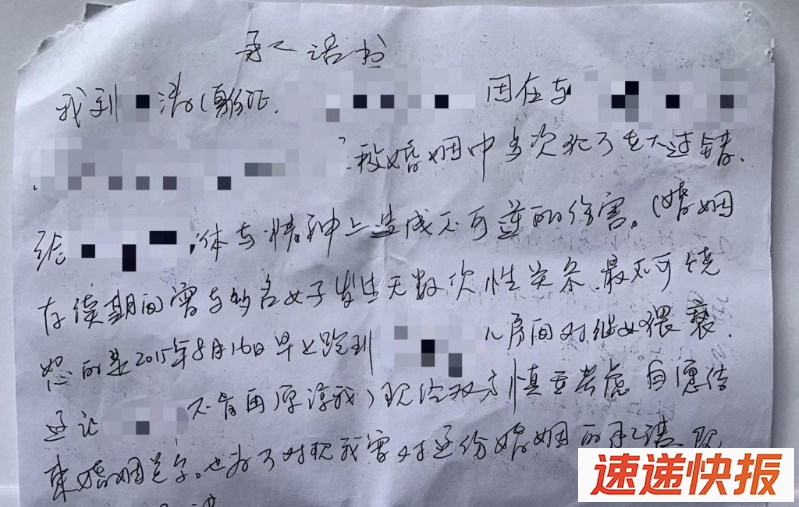 承诺书
我刘 涛(身份证. 因在与
. 段婚姻中多次犯了重大过错.
给 体与精神上造成不可逆的伤害。(婚姻
存续期间曾与多名女子发生无数次性关系.最不可饶
恕的是2015年8月16日早上跑到 房间对继女猥亵.
这让 不肯再原谅我)现经双方慎重考虑自愿结
束婚姻关系.也为了对 我曾对这份婚姻的承诺.现
速递快报